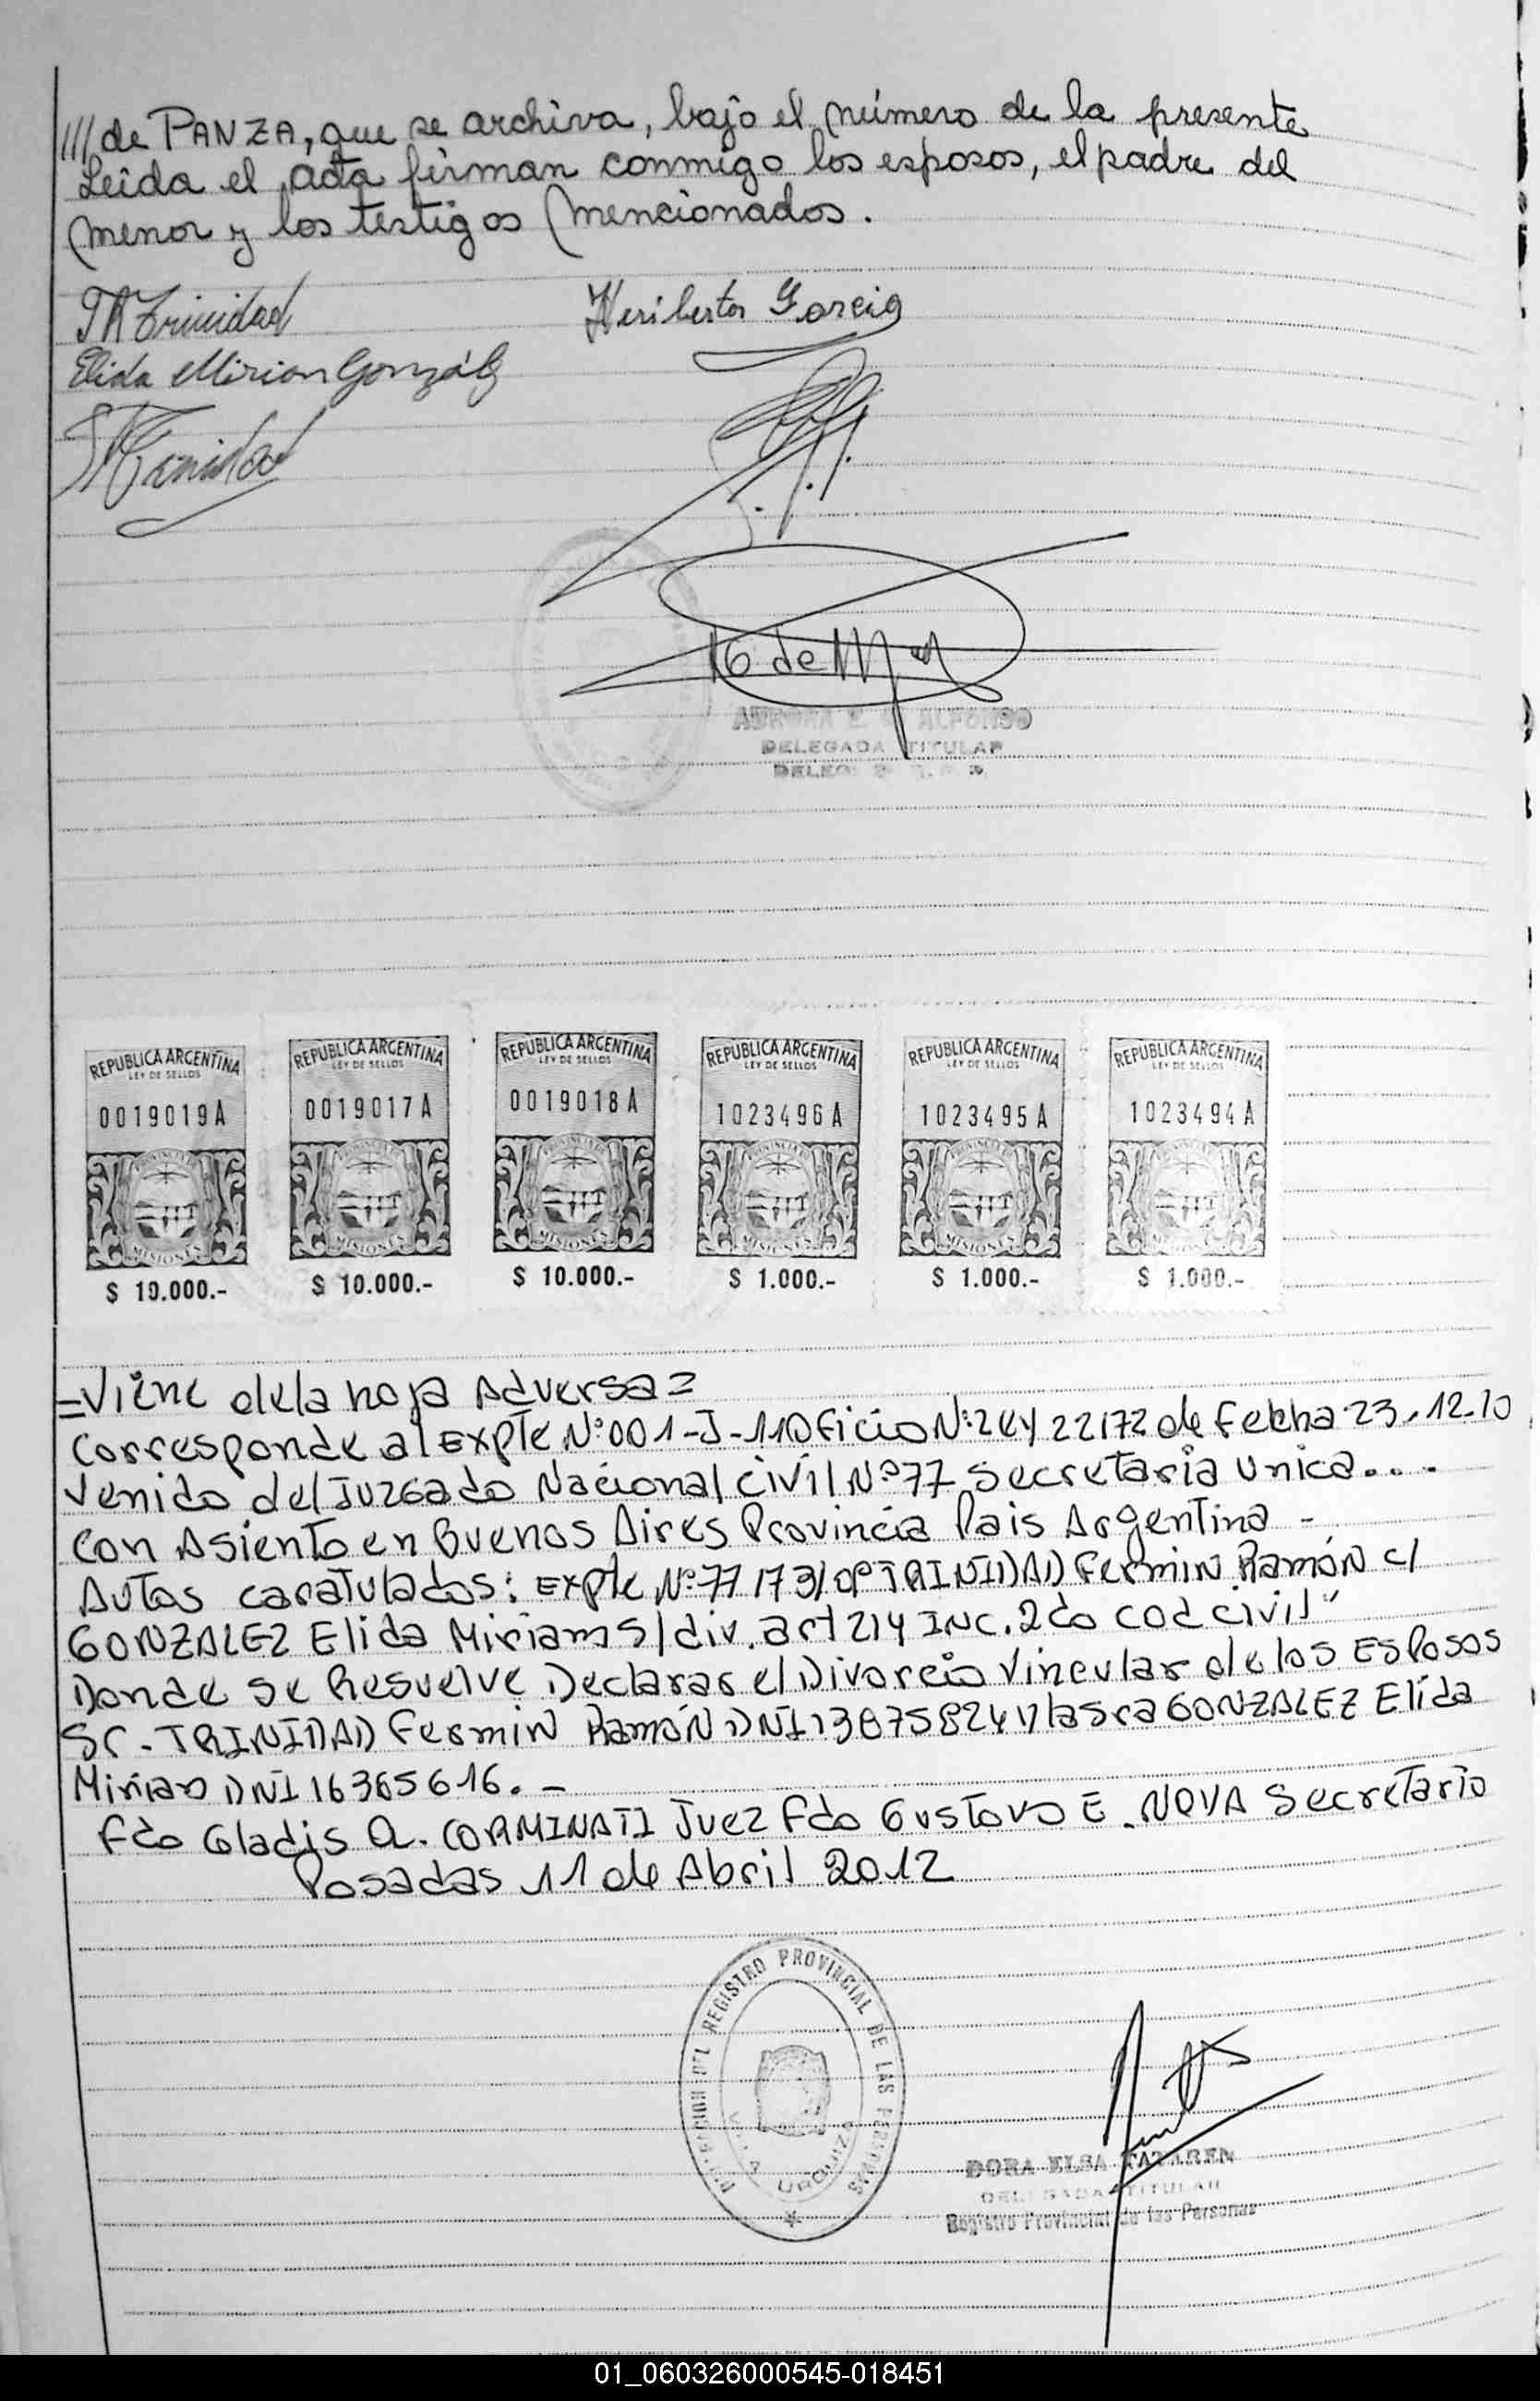 /// de PANZA, que se archiva, bajo el número de la presente
Leída el Acta firman conmigo los esposos, el padre del
menor y los testigos mencionados.
Trinidad
Heriberto Garcia
Elida Mirian González
16 de
AURORA E. ALFONSO
DELEGADA TITULAR
REPUBLICA ARGENTINA REPUBLICA ARGENTINA REPUBLICA ARGENTINA REPUBLICA ARGENTINA REPUBLICA ARGENTINA REPUBLICA ARGENTINA
LEY DE SELLOS LEY DE SELLOS LEY DE SELLOS LEY DE SELLOS LEY DE SELLOS LEY DE SELLOS
0019019A 0019017A 0019018A 1023496A 1023495A 1023494A
MISIONES MISIONES MISIONES MISIONES MISIONES MISIONES
$ 10.000.- $ 10.000.- $ 10.000.- $ 1.000.- $ 1.000.- $ 1.000.-
=Viene de la hoja Adversa=
Corresponde al Expte Nº001-J-11 Oficio Nº: 22172 de Fecha 23.12.10
Venido del Juzgado Nacional Civil Nº77 Secretaria Unica...
Con Asiento en Buenos Aires Provincia Pais Argentina -
Autos caratulados: Expte Nº 77173/ TRINIDAD Fermin Ramón c/
GONZALEZ Elida Miriam S/div. art 214 INC. 2do cod civil"
Donde se Resuelve Declarar el Divorcio Vincular de los Esposos
Sr. TRINIDAD Fermin Ramón DNI 13875824 y la sra GONZALEZ Elida
Mirian DNI 16365616. -
Fdo Gladis A. CORMINATI Juez Fdo Gustavo E. NOVA Secretario
Posadas 11 de Abril 2012
DELEGACION DEL REGISTRO PROVINCIAL DE LAS PERSONAS
VILLA URQUIZA
DORA ELSA TATAREN
DELEGADA TITULAR
Registro Provincial de las Personas
01_060326000545-018451